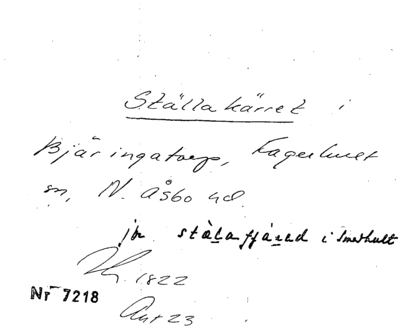 Ställakärret i
Bjäringatorp, Fagerhult
sn, N. Åsbo hd.
jfr stàlafjärad i Smedhult
1822
Nr 7218
23